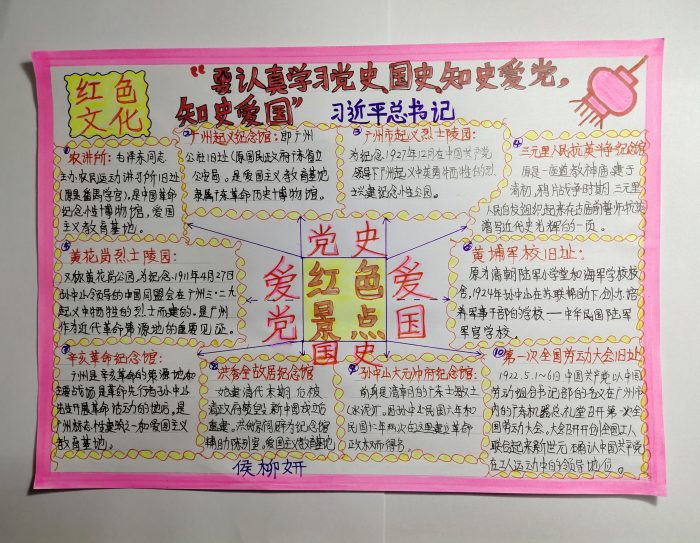 红色
文化
“要认真学习党史、国史、知史爱党，
知史爱国”
习近平总书记
①农讲所：毛泽东同志
主办农民运动讲习所旧址
（原是番禺学宫），是中国革命
纪念性博物馆，爱国
主义教育基地。
②广州起义纪念馆：即广州
公社旧址（原国民政府广东省立
公安局）。是爱国主义教育基地
③广州市起义烈士陵园：
为纪念1927年12月在中国共产党
领导下广州起义中英勇牺牲的烈
士兴建纪念性公园。
④三元里人民抗英斗争纪念馆
原是一座道教神庙，建于
清初，鸦片战争时期，三元里
人民自发组织起来在古庙前誓师抗英
谱写近代史光辉的一页。
⑤黄花岗烈士陵园：
又称黄花岗公园，为纪念1911年4月27日
孙中山领导的中国同盟会在广州三·二九
起义中牺牲的烈士而建的。是广州
作为近代革命策源地的重要见证。
党史
爱党
红色
景点
爱国
国史
⑥黄埔军校旧址：
原为清朝陆军小学堂和海军学校校
舍，1924年孙中山在苏联帮助下创办，培
养军事干部的学校——中华民国陆军
军官学校。
⑦辛亥革命纪念馆：
广州是辛亥革命的策源地和
主要战场是革命先行者孙中山
先生开展革命活动的地点，是
广州标志性建筑之一和爱国主义
教育基地。
⑧洪秀全故居纪念馆
始建清代末期，后被
清政府焚毁，新中国成立后
重建。
辅助陈列室。爱国主义教育基地
⑨孙中山大元帅府纪念馆：
前身是清朝的广东士敏土厂
（水泥厂）。因孙中山民国六年和
民国十二年两次在这里建立革命
正政权而得名。
⑩第一次全国劳动大会旧址
1922.5.1~6日中国共产党以中国
劳动组合书记部的名义在广州市
内的广东机器总礼堂召开第一次全
国劳动大会。大会召开开创全国工人
联合起来新世元，确认中国共产党
在工人运动中的领导地位。
侯柳妍